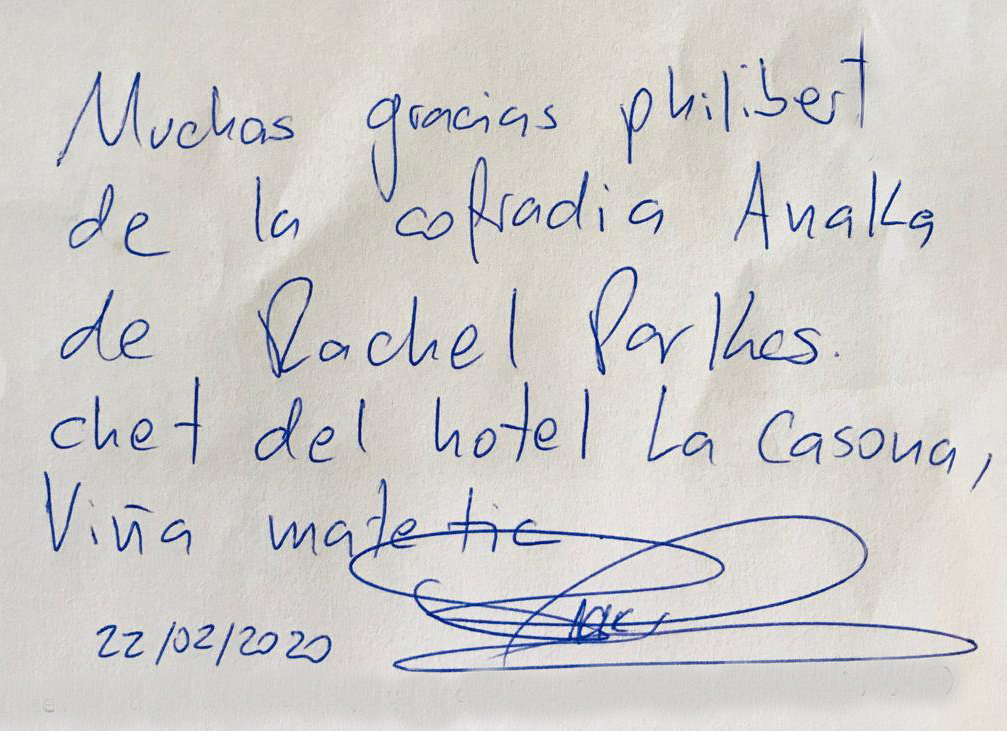 Muchas gracias philibert
de la cofradia Anaka
de Rachel Parkhes.
chef del hotel La Casona,
Viña matetic
22/02/2020